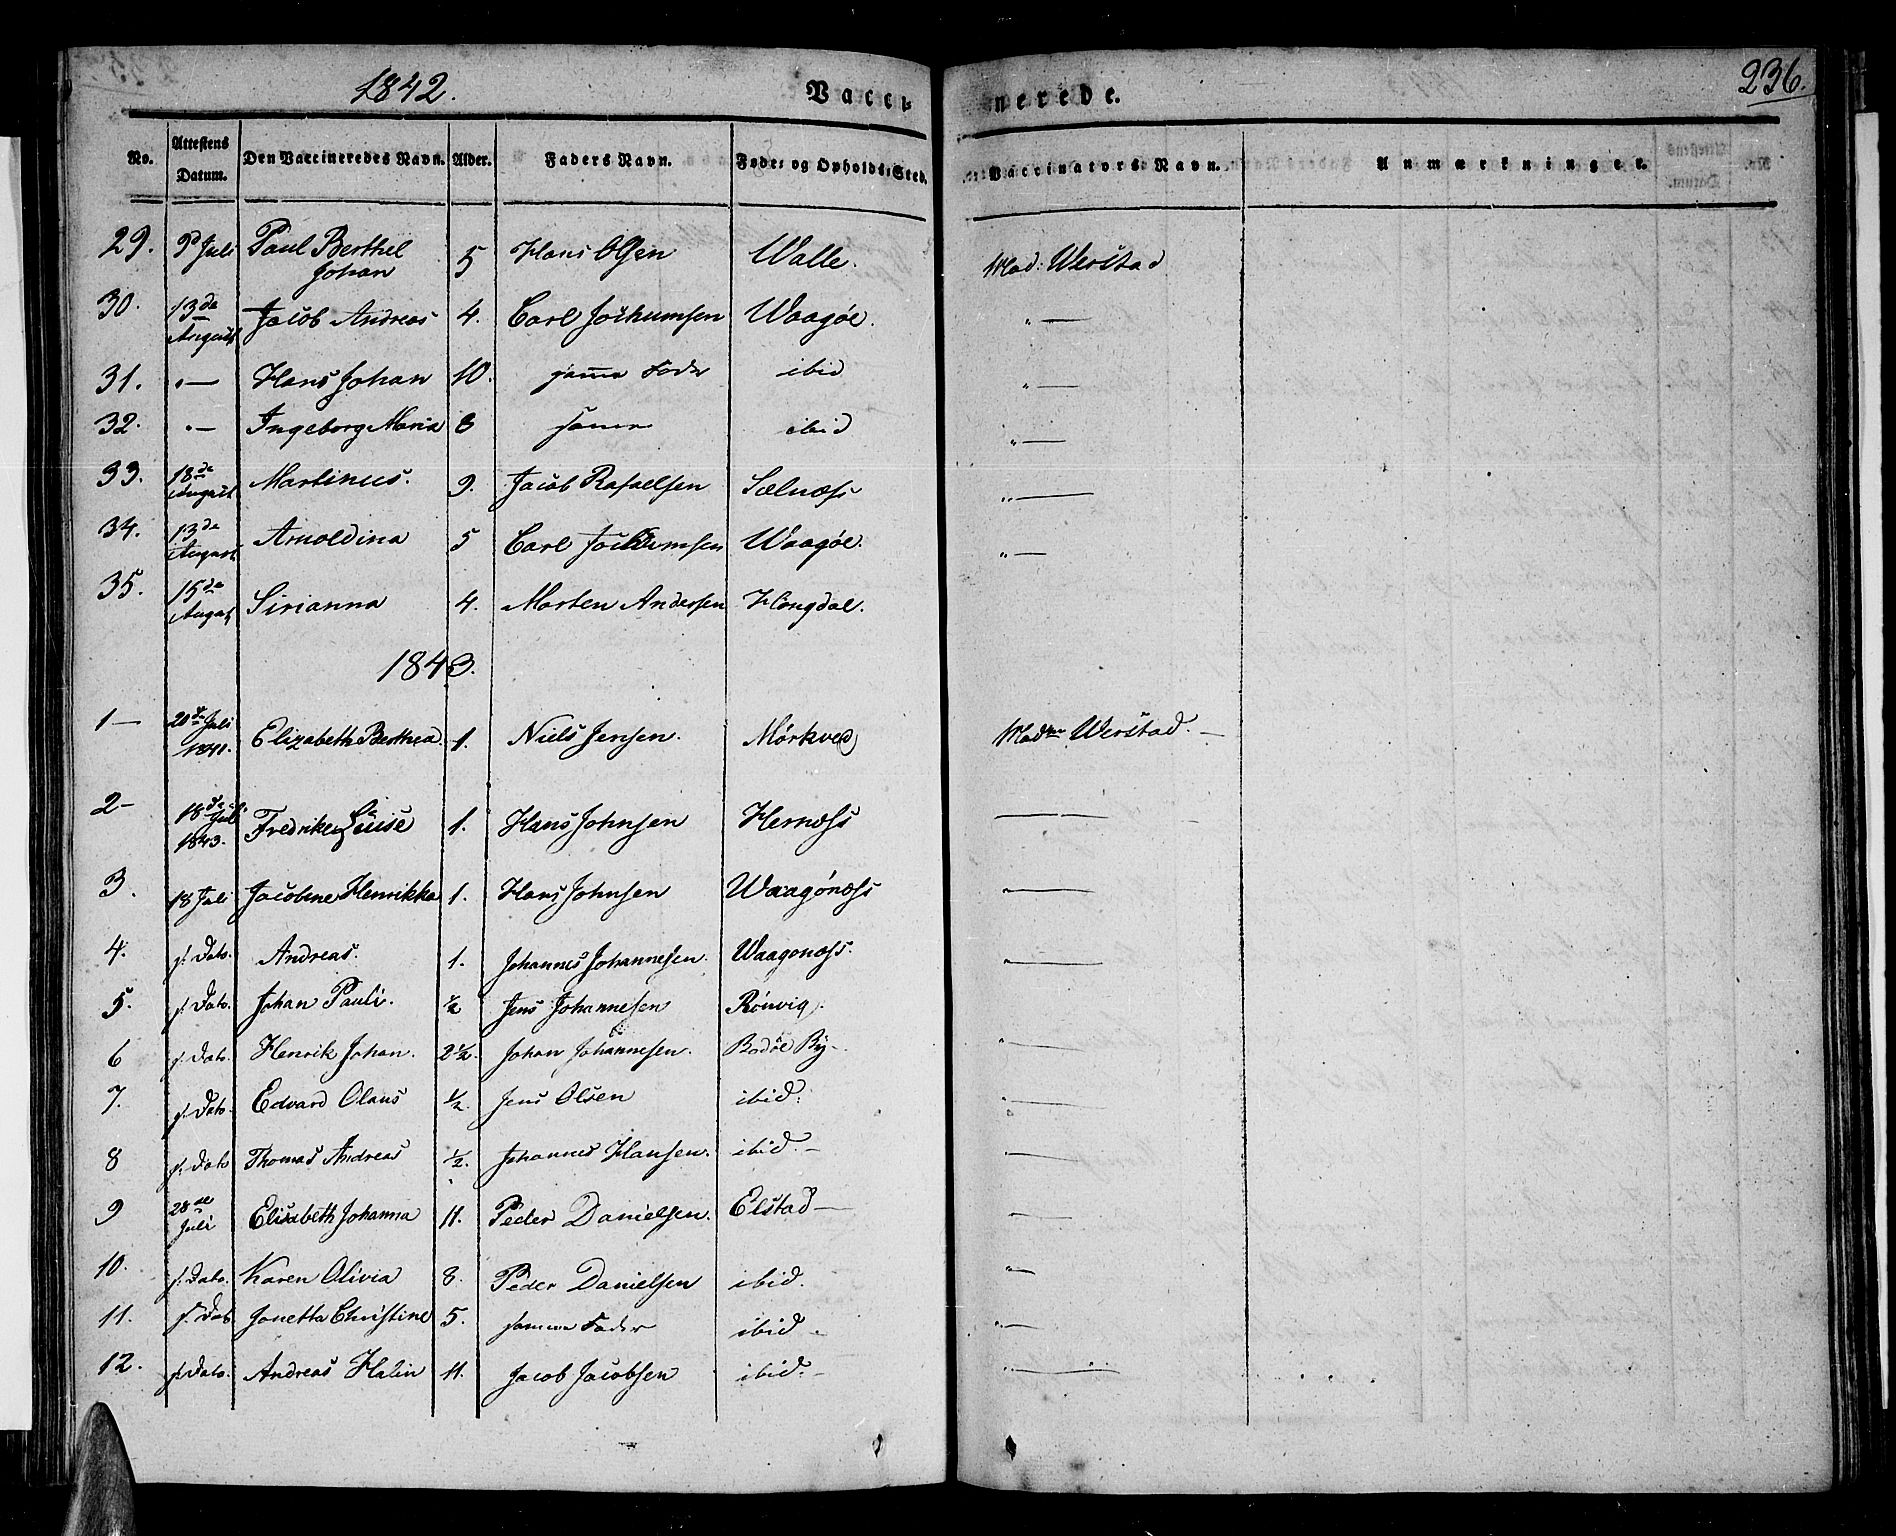 1842. Vacci- nerede. 236.
No. Attestens Datum. Den Vaccineredes Navn. Alder. Faders Navn. Føde- og Opholds-Sted. Vaccinators Navn. Anmærkninger.
29. 9d Juli Paul Berthel Johan 5 Hans Olsen Walle. Mad: Werstad
30. 13de August Jacob Andreas 4. Carl Jochumsen Waagøe. " —
31. " — Hans Johan 10. samme Fader ibid " —
32. " — Ingeborg Maria 8 samme ibid " —
33. 18de August Martinus. 9. Jacob Rafaelsen Sælnæss " —
34. 13de August Arnoldina 5 Carl Jochumsen Waagøe. " —
35. 15de August Sirianna 4. Morten Andersen Høngdal.
1843.
1 — 20de Juli 1841. Elizabeth Berthea 1. Niels Jensen. Mørkved Madme Werstad. —
2 - 18de Juli 1843. Fredrike Louise 1. Hans Johnsen Hernæss —
3. 18 Juli Jacobine Henrikka 1. Hans Johnsen Waagønæss " —
4. s. Dato. Andreas. 1. Johannes Johannesen. Waagonæss. " —
5. s. Dato. Johan Pauli. ½ Jens Johannesen Rönvig.
6 s. Dato. Henrik Johan. 2½. Johan Johannesen. Bodøe By - " —
7. s. Dato. Edvard Olaus ½. Jens Olsen ibid. " —
8 s. Dato Thomas Andreas ½. Johannes Hansen. ibid. - " —
9 28de Juli Elisabeth Johanna 11. Peder Danielsen. Elstad — " —
10. s. Dato. Karen Olivia 8. Peder Danielsen ibid. " —
11. s. Dato Jonetta Christine 5. samme Fader ibid - " —
12. s. Dato. Andreas 11. Jacob Jacobsen ibid. - " —